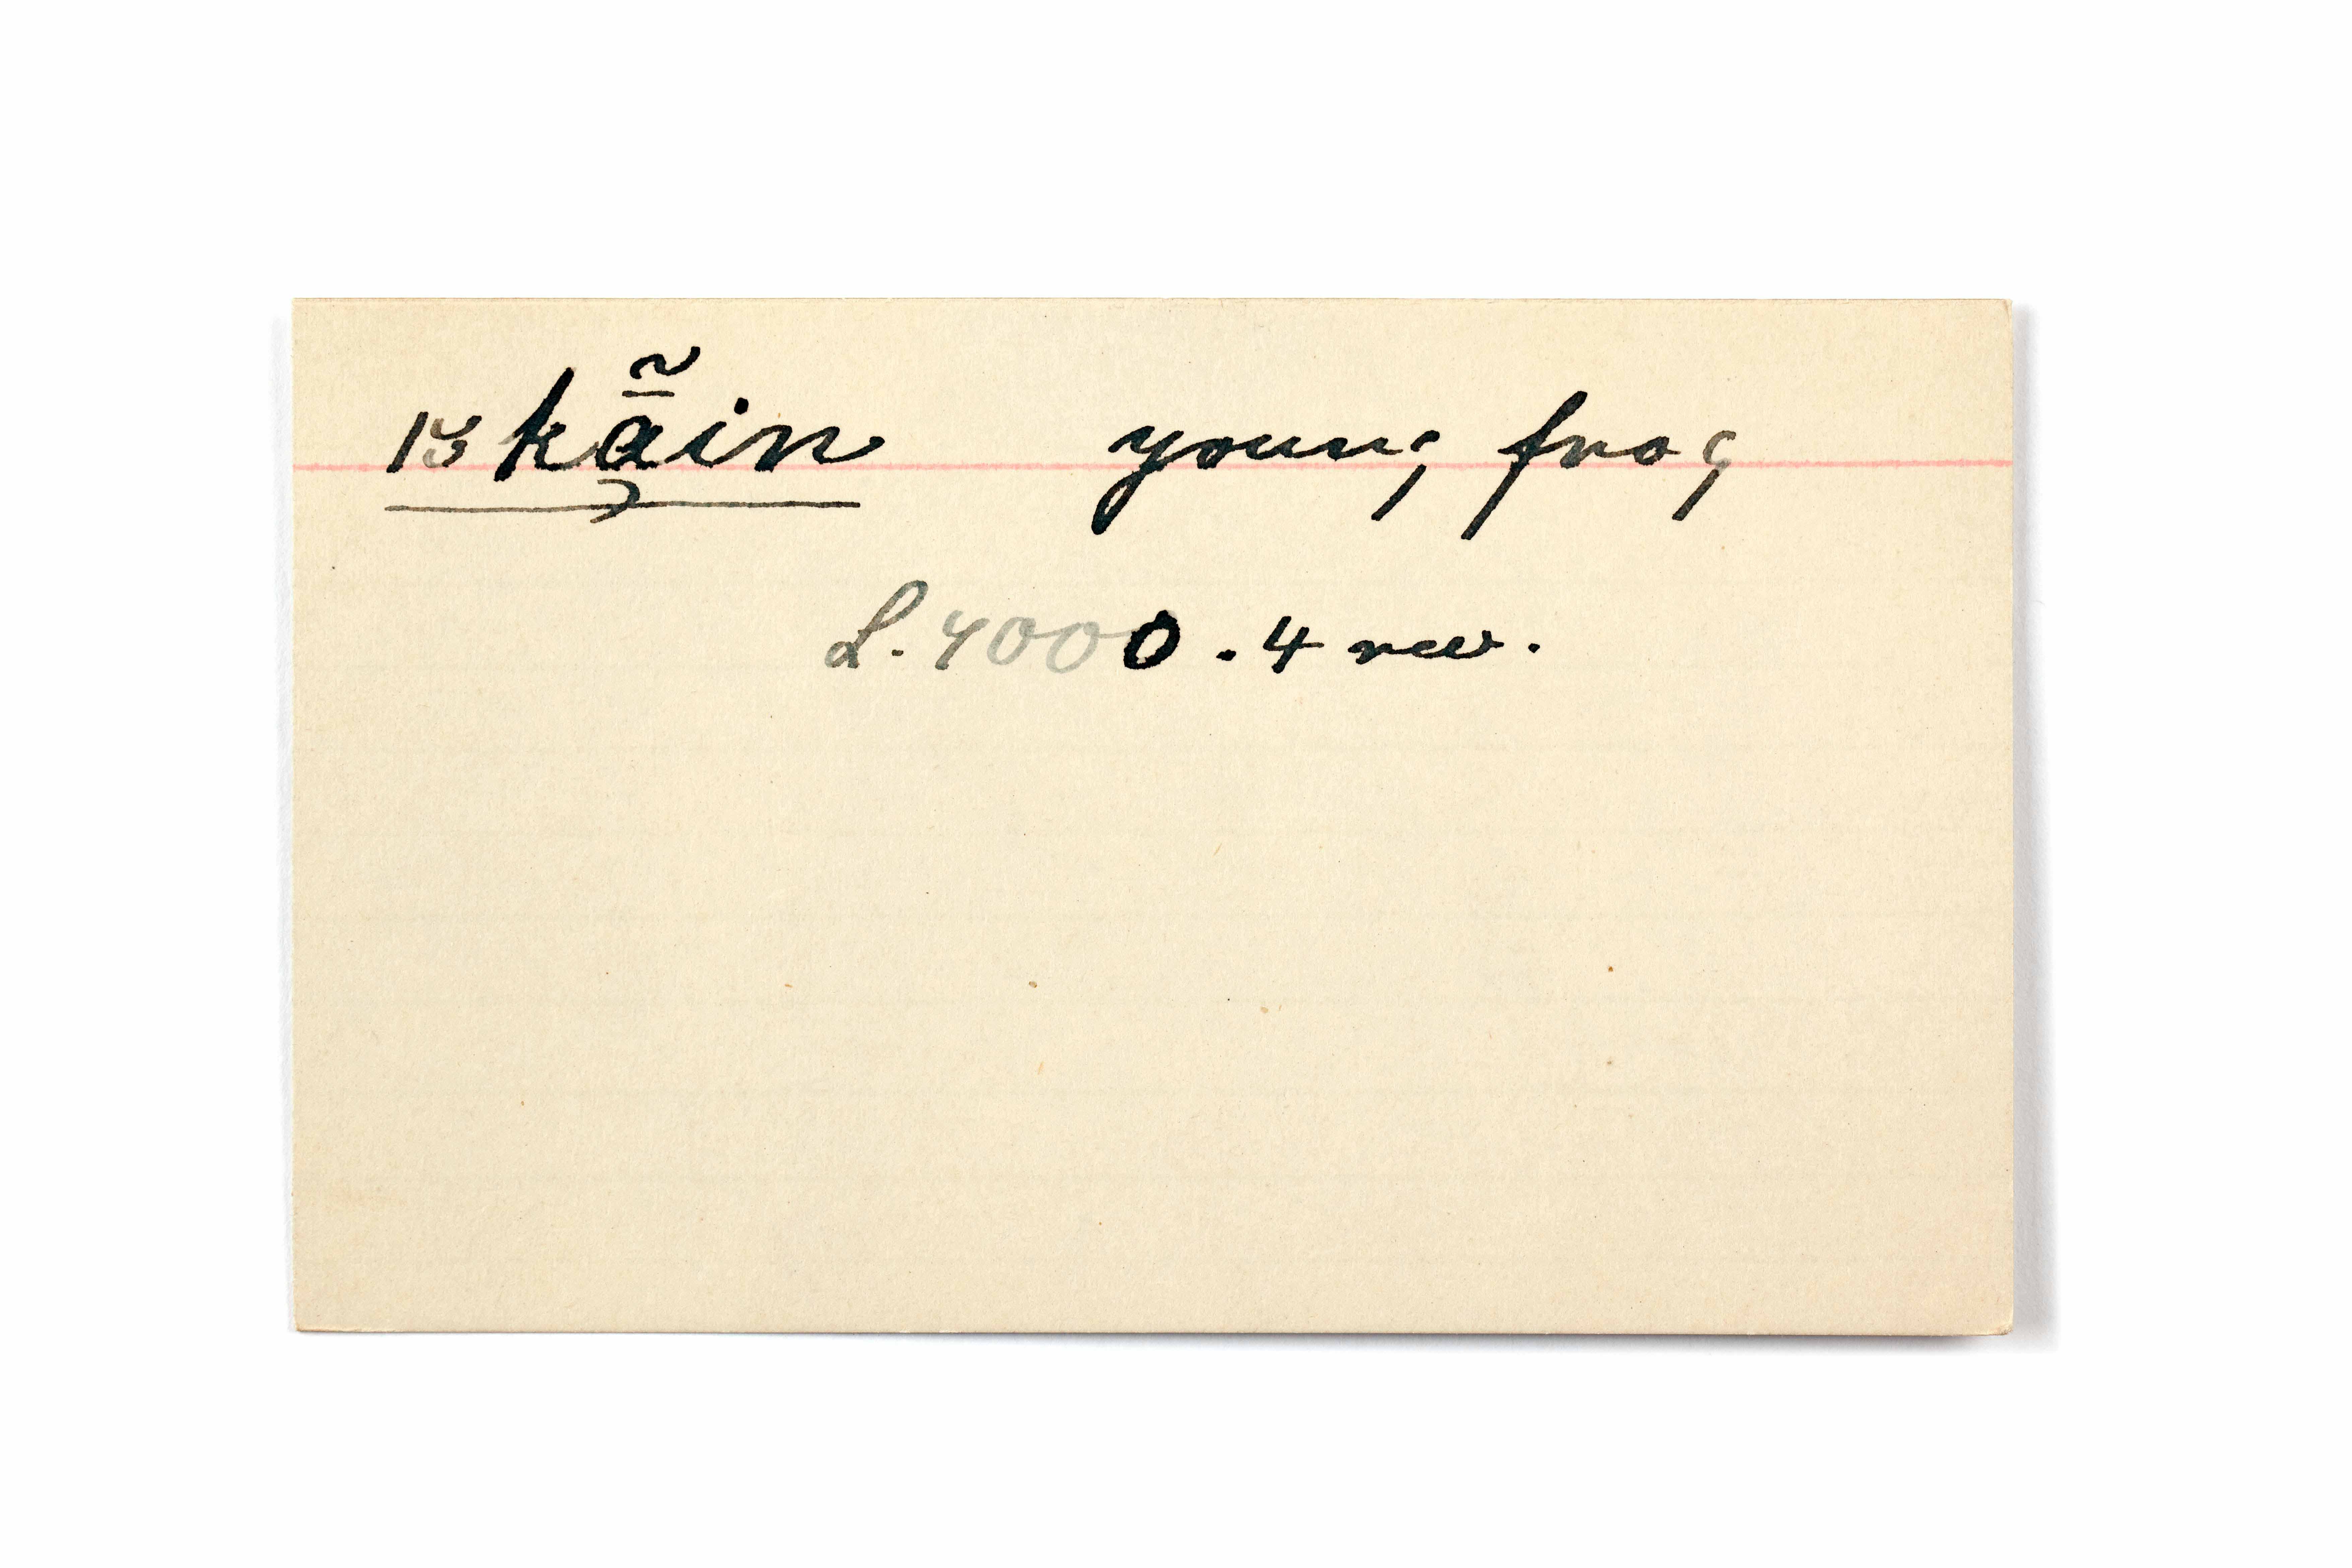 iską̄̃in young frog
L. 4000. 4 rev.